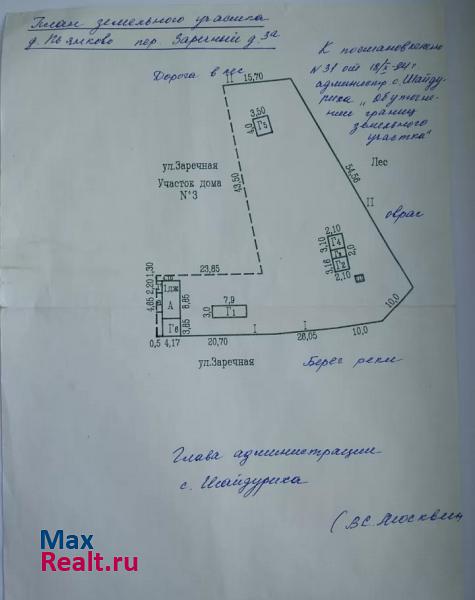 План земельного участка
д. Кьянково пер. Заречный д. 3а
К постановлению
N 31 от 18/X-94 г
администр с. Шайду-
рика „Об уточне-
нии границ
земельного
участка"
Дорога в лес
II 15,70
3,50
4,0 Г5
ул.Заречная
Участок дома
N°3
43,50
54,56
Лес
II
овраг
2,10
3,10 Г4
Г3 2,0
3,16 Г2
2,10
23,85
1,30
2,20
4,65
1дж
А
8,85
Г6
3,85
7,9
3,0 Г1
I I
10,0
0,5 4,17 20,70 28,05 10,0
ул.Заречная
Берег реки
Глава администрации
с. Шайдуриха
(В.С. Москвин
Max
Realt.ru